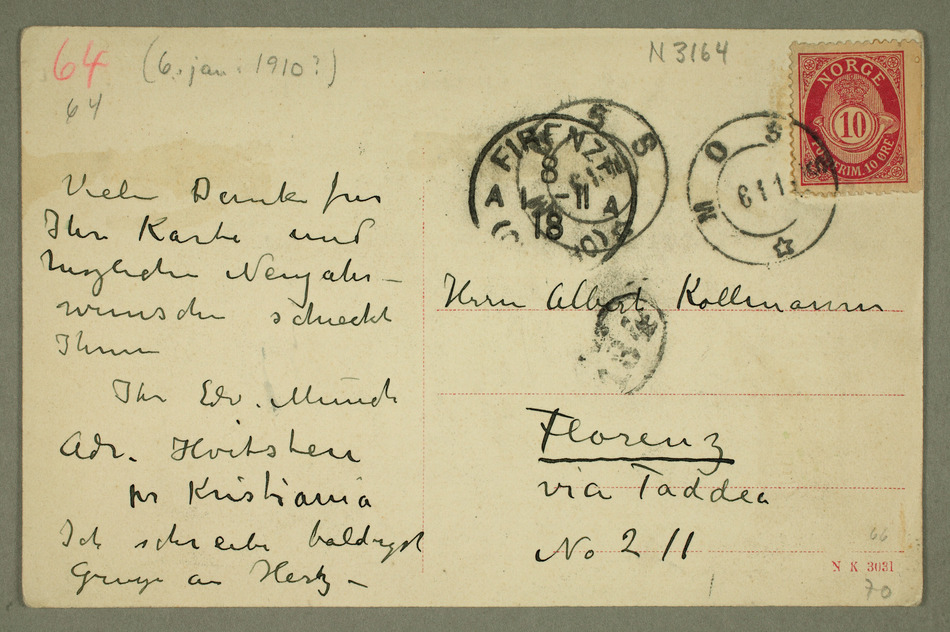 64 (6. jan. 1910?)
N 3164
64
NORGE
10
FRIM. 10 ØRE
MOSS
6 I 1
FIRENZE
A 8 - 11 A
18
Vielen Dank fur
Ihre Karte und
herzlichen Neujahrs-
wunsche schickt
Ihnen
Ihr Edv. Munch
Adr. Hvitsten
pr Kristiania
Ich schreibe baldigst
Grüsse an Herz –
Herrn Albert Kollmann
Florenz
via Taddea
No 2 II
66
N K 3031
70